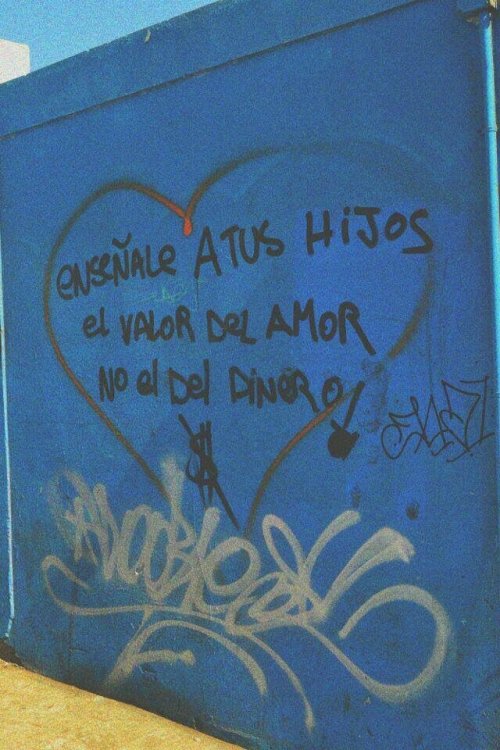 enseÑAle A TUS HiJOS
el VALOR Del AMOR
No el Del DiNeRO!
$